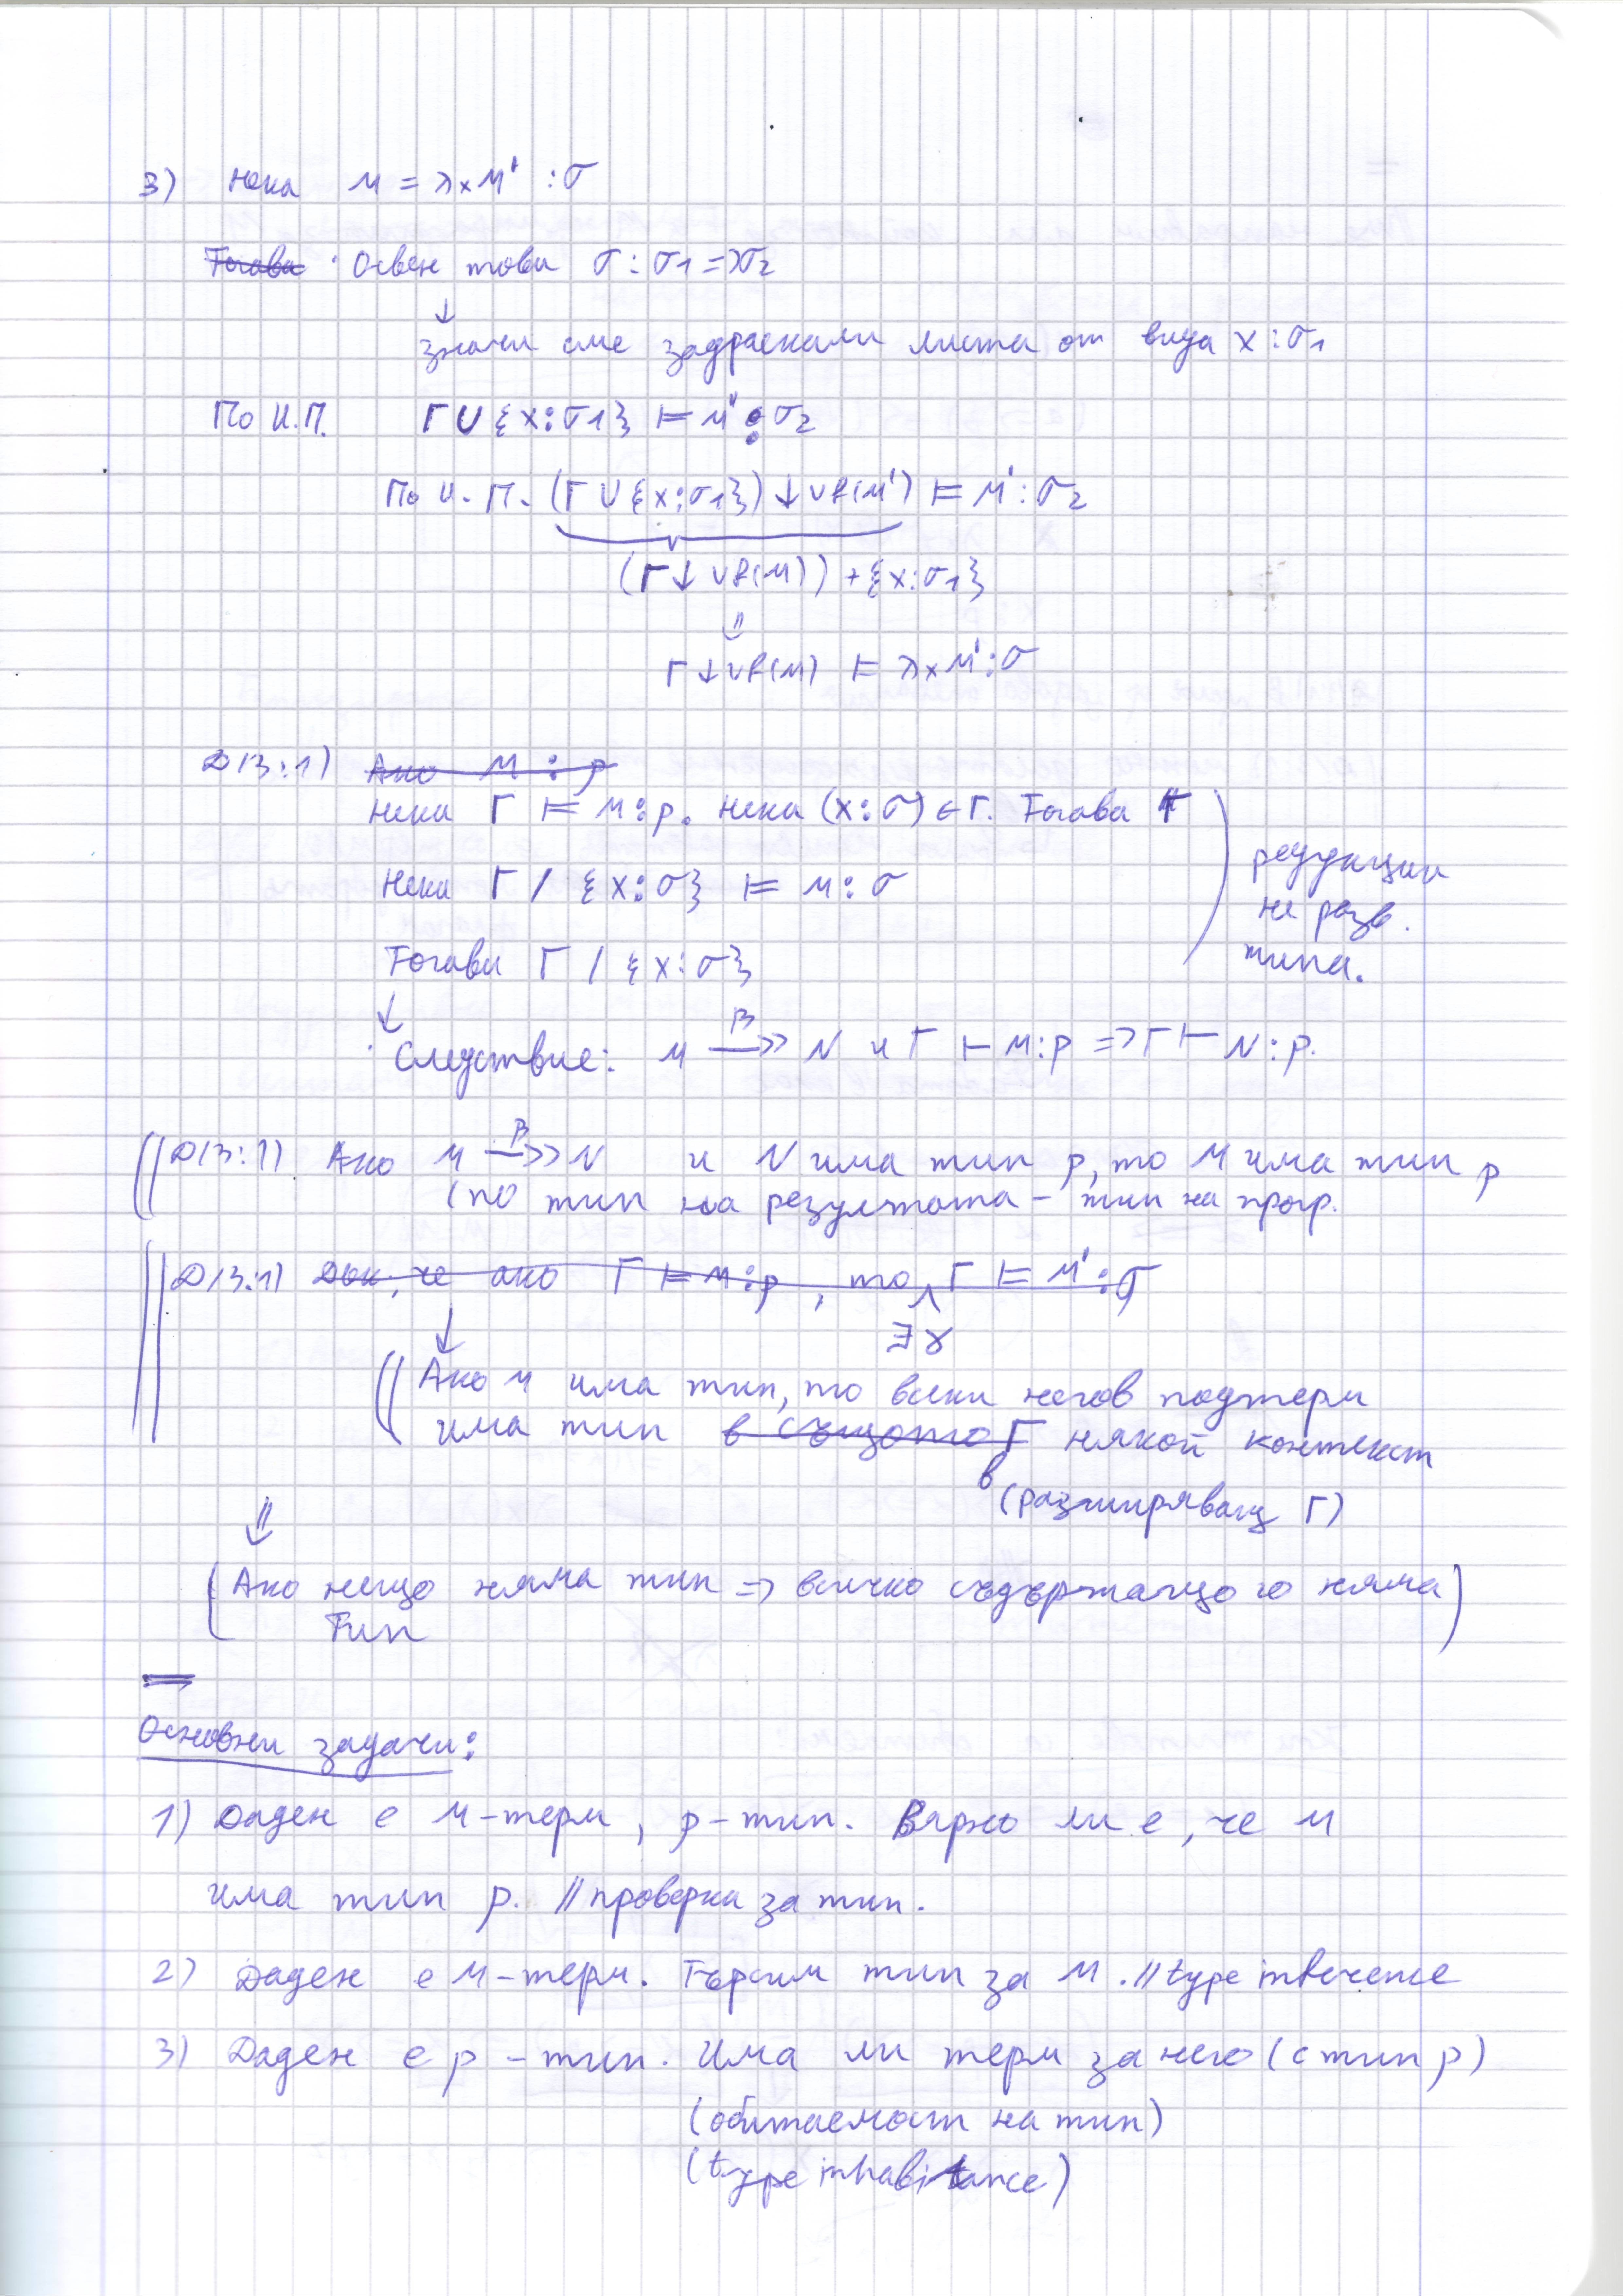 3) Нека M = λxM' : σ
Тогава Освен това σ : σ1 => σ2
↓
значи сме задраскали листа от вида x : σ1
По И.П. Γ ∪ {x:σ1} ⊨ M' : σ2
По И.П. (Γ ∪ {x:σ1}) ↓ Vf(M') ⊨ M' : σ2
(Γ ↓ Vf(M)) + {x:σ1}
⇓
Γ ↓ Vf(M) ⊨ λxM' : σ
Д/З:1) Ако M : ρ
Нека Γ ⊨ M:ρ. Нека (x:σ) ∈ Γ. Тогава Γ
Нека Γ / {x:σ} ⊨ M:σ
Тогава Γ / {x:σ}
редукции
не разв.
типа.
↓
Следствие: M β↠ N и Γ ⊢ M:ρ => Γ ⊢ N:ρ.
Д/З:1) Ако M β↠ N и N има тип ρ, то M има тип ρ
(по тип на резултата – тип на прогр.
Д/З:1) Док, че ако Γ ⊨ M:ρ, то Γ ⊨ M' : σ
∃γ
↓
Ако M има тип, то всеки негов подтерм
има тип в същото Γ някой контекст
в (разширяващ Γ)
⇓
(Ако нещо няма тип => всичко съдържащо го няма)
Тип
Основни задачи:
1) Даден е M-терм, ρ-тип. Вярно ли е, че M
има тип ρ. // проверка за тип.
2) Даден е M-терм. Търсим тип за M. // type inference
3) Даден е ρ-тип. Има ли терм за него (с тип ρ)
(обитаемост на тип)
(type inhabitance)